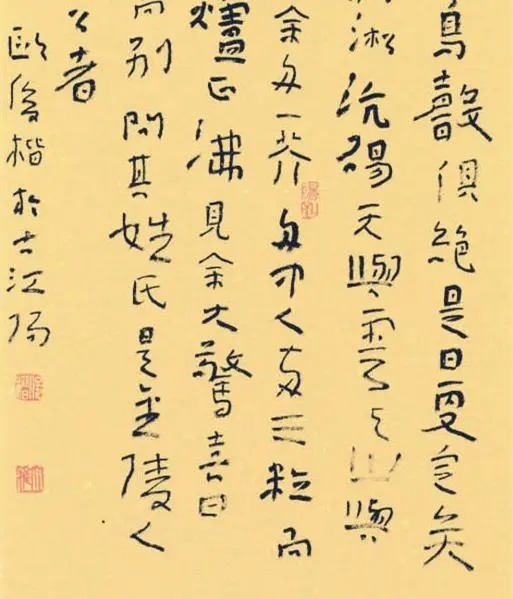 鳥聲俱絕是日更定矣
淞沆碭天與雲与山與
余舟一芥舟中人兩三粒而
爐正沸見余大驚喜曰
而別問其姓氏是金陵人
公者
歐楷於古江陽